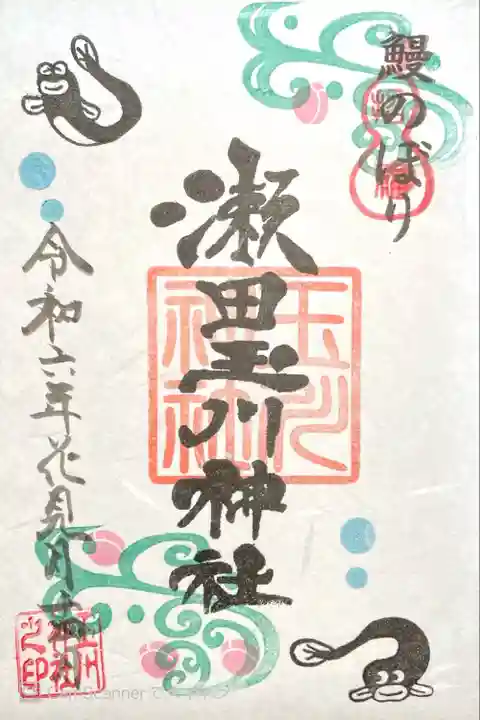 鰻のぼり
瀬田玉川神社
玉川神社
令和六年花見月
玉川神社之印
CamScanner でスキャン